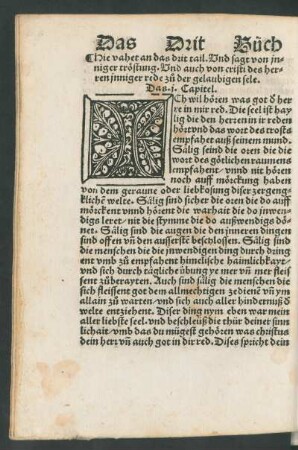 Das Drit Bůch
¶Hie vahet an das drit tail. Und sagt von jn-
niger tröstung. Und auch von cristi des her-
ren jnniger rede zů der gelaubigen sele.
Das .j. Capitel.
ICh wil hören was got ď her-
re in mir red. Die seel ist hay-
lig die den herren in ir reden
hört vnd das wort des trosts
empfahet auß seinen mund.
Sälig seind die oren die die
wort des götlichen raunens
empfahent / vnnd nit hören
noch auff mörckung haben
von dem geraune oder liebkosung diser zergeng-
klichē welte. Sälig sind sicher die oren die do auff
mörckent vnnd hörent die warhait die do jnwen-
digs leret / nit die stymme die do außwendigs dö-
net. Sälig sind die augen die den jnneren dingen
sind offen vn̄ den ausserstē beschlossen. Sälig sind
die menschen die die jnwendigen ding durch dring
ent vnd zů empfahent himelische haimlichkayt /
vnd sich durch tägliche übung ye mer vn̄ mer fleis
sent zůberayten. Auch sind sälig die menschen die
sich fleissent got dem allmechtigen zedienē vn̄ ym
allain zů warten / vnd sich auch aller hindernuß ď
welte entziehent. Diser ding nym eben war mein
aller liebste seel / vnd beschleüß die thür deiner sinn
lichait / vmb das du mügest gehören was christus
dein herr vn̄ auch got in dir red. Dises spricht dein